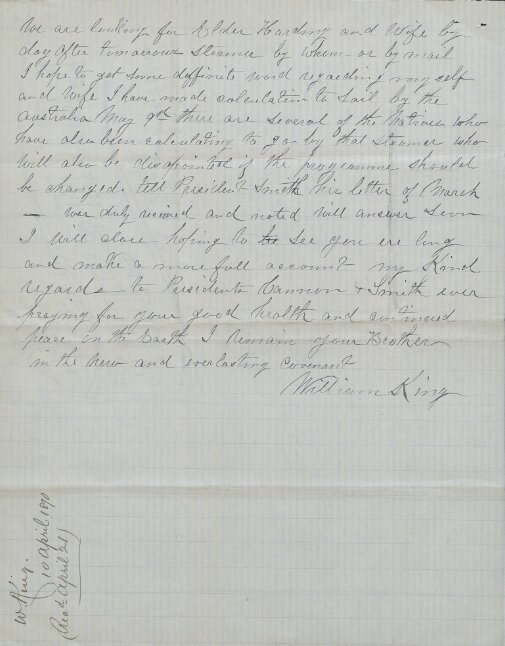 We are looking for Elder Harding and Wife by
day after timorrow Steamer by whom or by mail
I hope to get some deffinite word regarding my self
and wife I have made calculation to Sail by the
Australia May 9th there are several of the Natives who
have also been calculating to go by that Steamer who
will also be disapointed if the programme should
be changed. tell President Smith his letter of March
— wer duly recieved and noted will answer Soon
I will close hoping to see you ere long
and make a more full account my Kind
regards to Presidents Cannon & Smith ever
praying for your good health and continued
peace on the Earth I remain your Brother
in the new and everlasting covenant
William King
W. King.
10 April 1890
(Recd April 21)